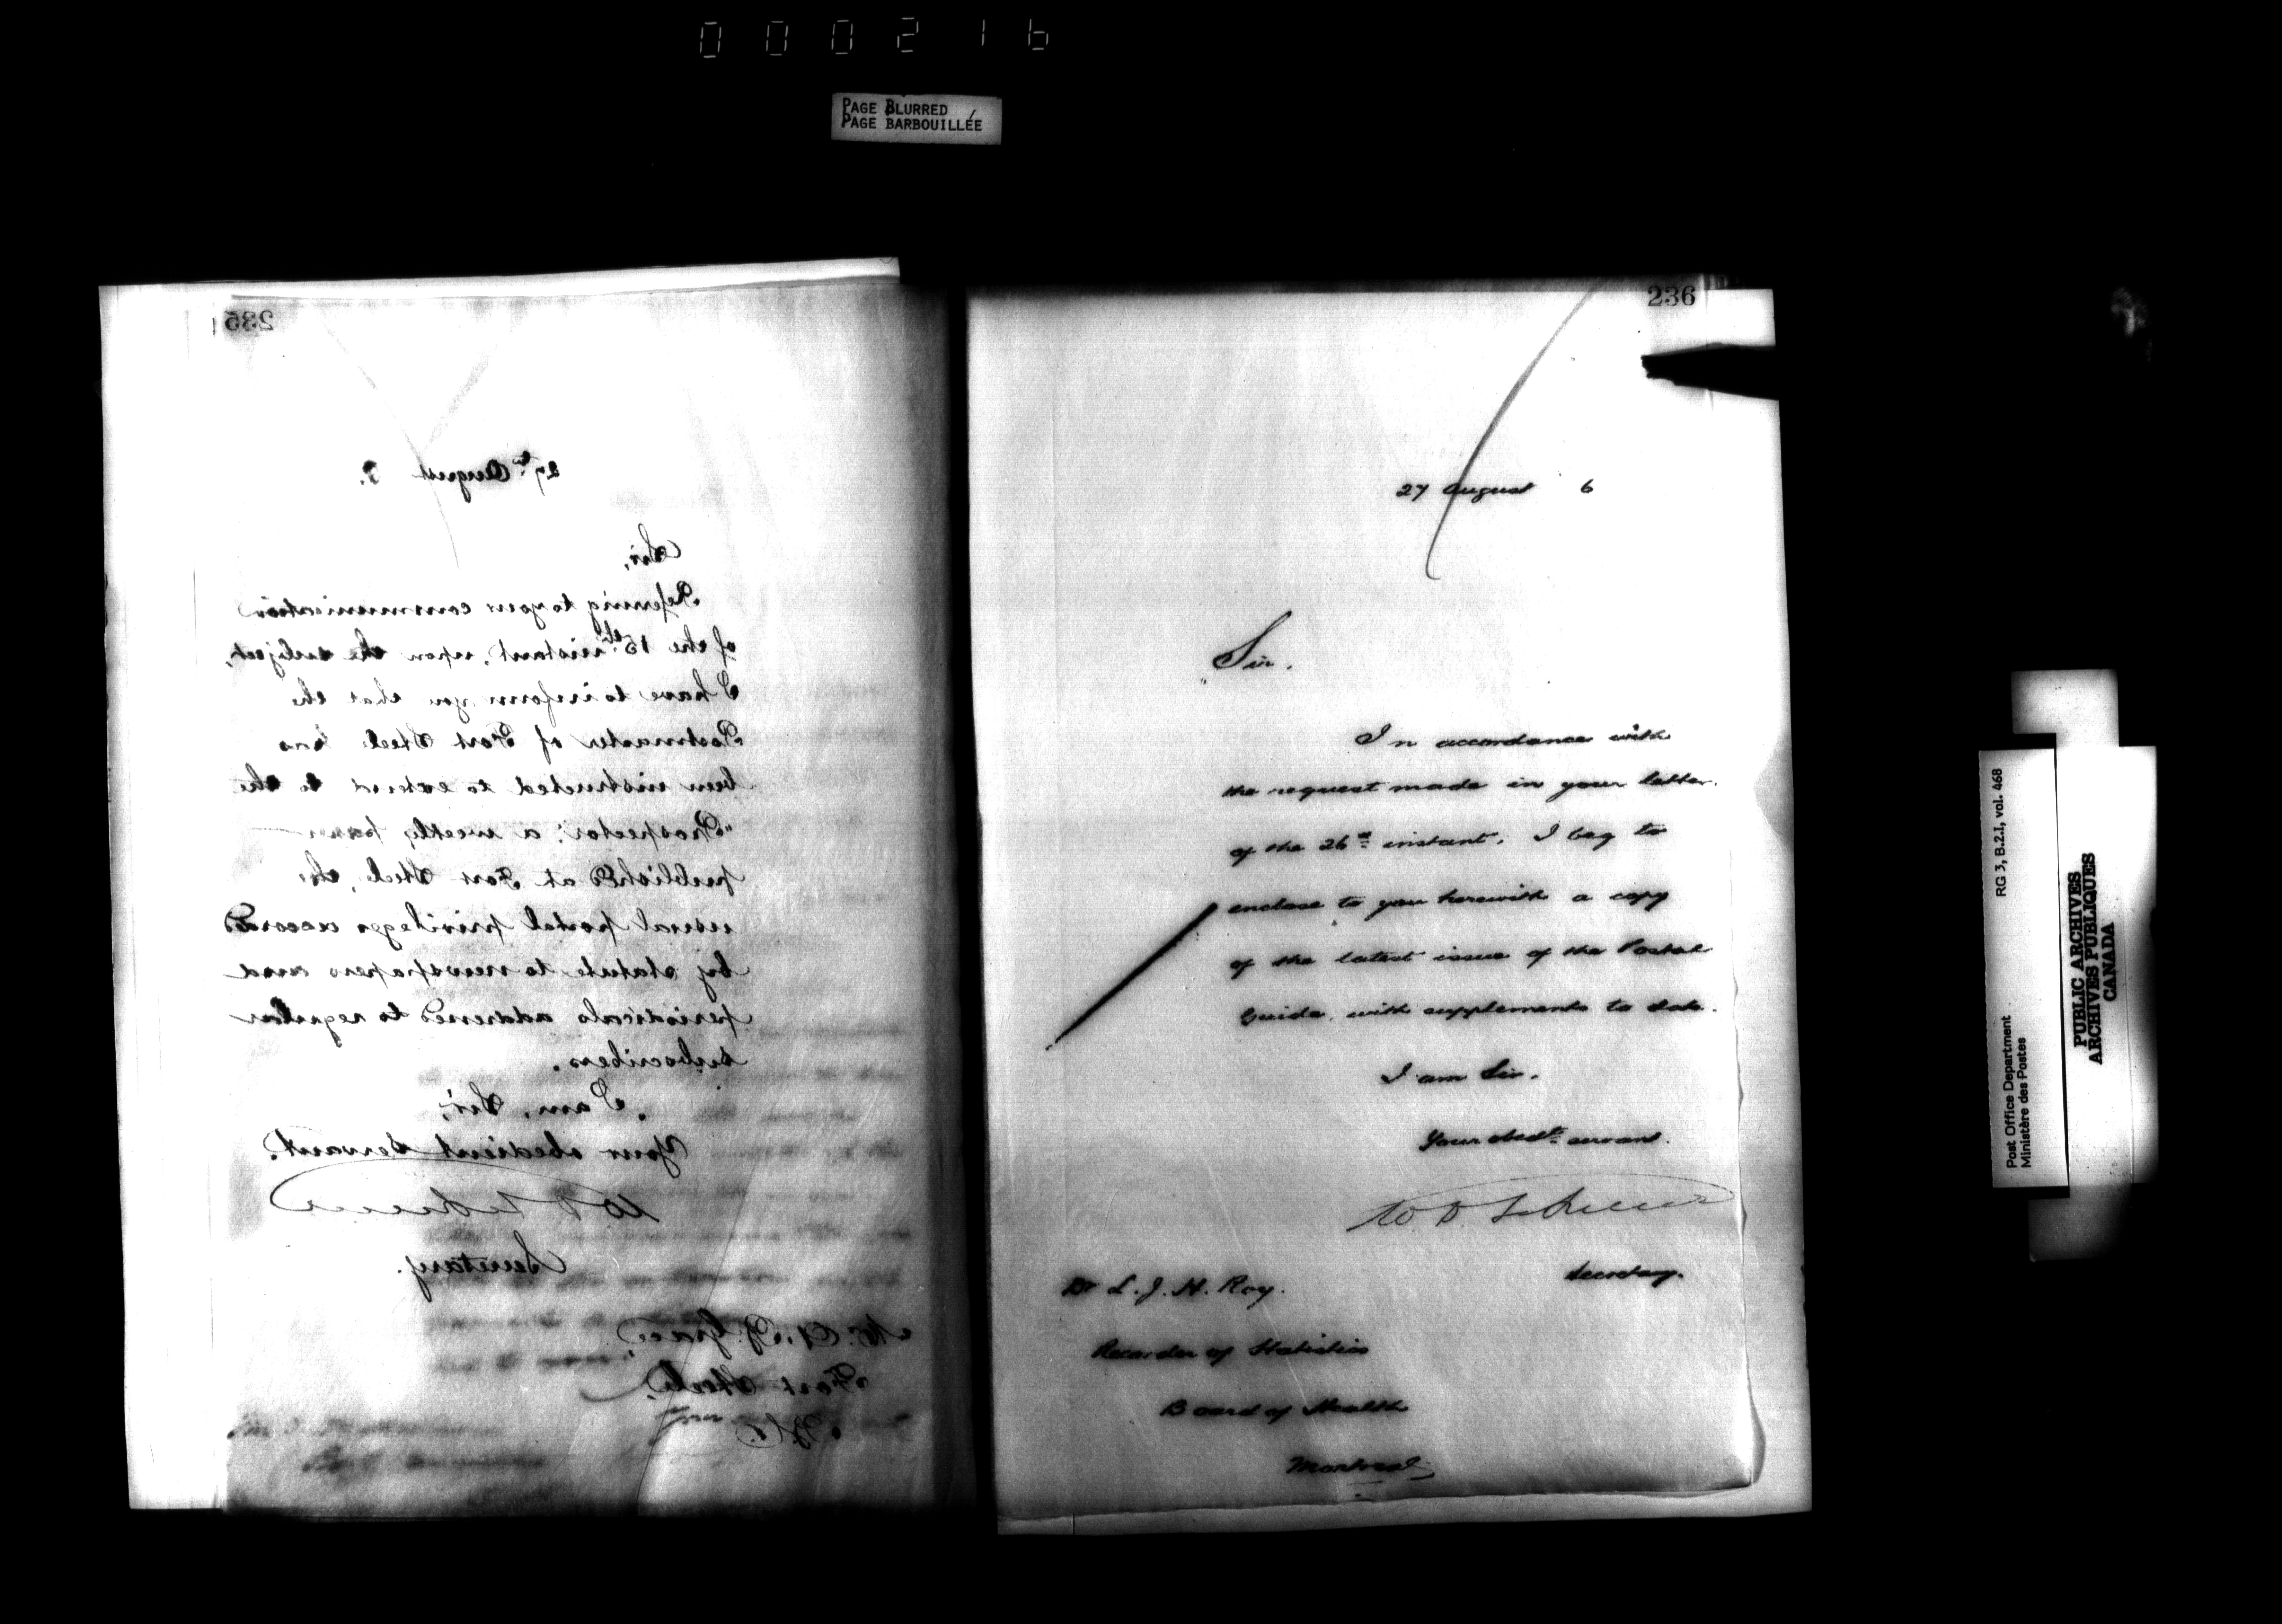 000216
PAGE BLURRED
PAGE BARBOUILLÉE
235
27th August
Sir,
Referring to your communication
of the 15th instant, upon the subject,
I have to inform you that the
Postmaster of Fort Steele has
been instructed to extend to the
"Prospector", a weekly paper
published at Fort Steele, the
usual postal privileges accorded
by statute to newspapers and
periodicals addressed to regular
subscribers.
I am, Sir,
Your obedient Servant.
Secretary.
Mr. A. B. Grace,
Fort Steele,
B.C.
236
27 August 6
Sir.
In accordance with
the request made in your letter
of the 26th instant, I beg to
enclose to you herewith a copy
of the latest issue of the Postal
Guide, with supplements to date.
I am Sir.
Your obedt servant.
Secretary.
Dr L. J. H. Roy.
Recorder of Statistics
Board of Health
Montreal
RG 3, B.2.I, vol. 468
Post Office Department
Ministère des Postes
PUBLIC ARCHIVES
ARCHIVES PUBLIQUES
CANADA